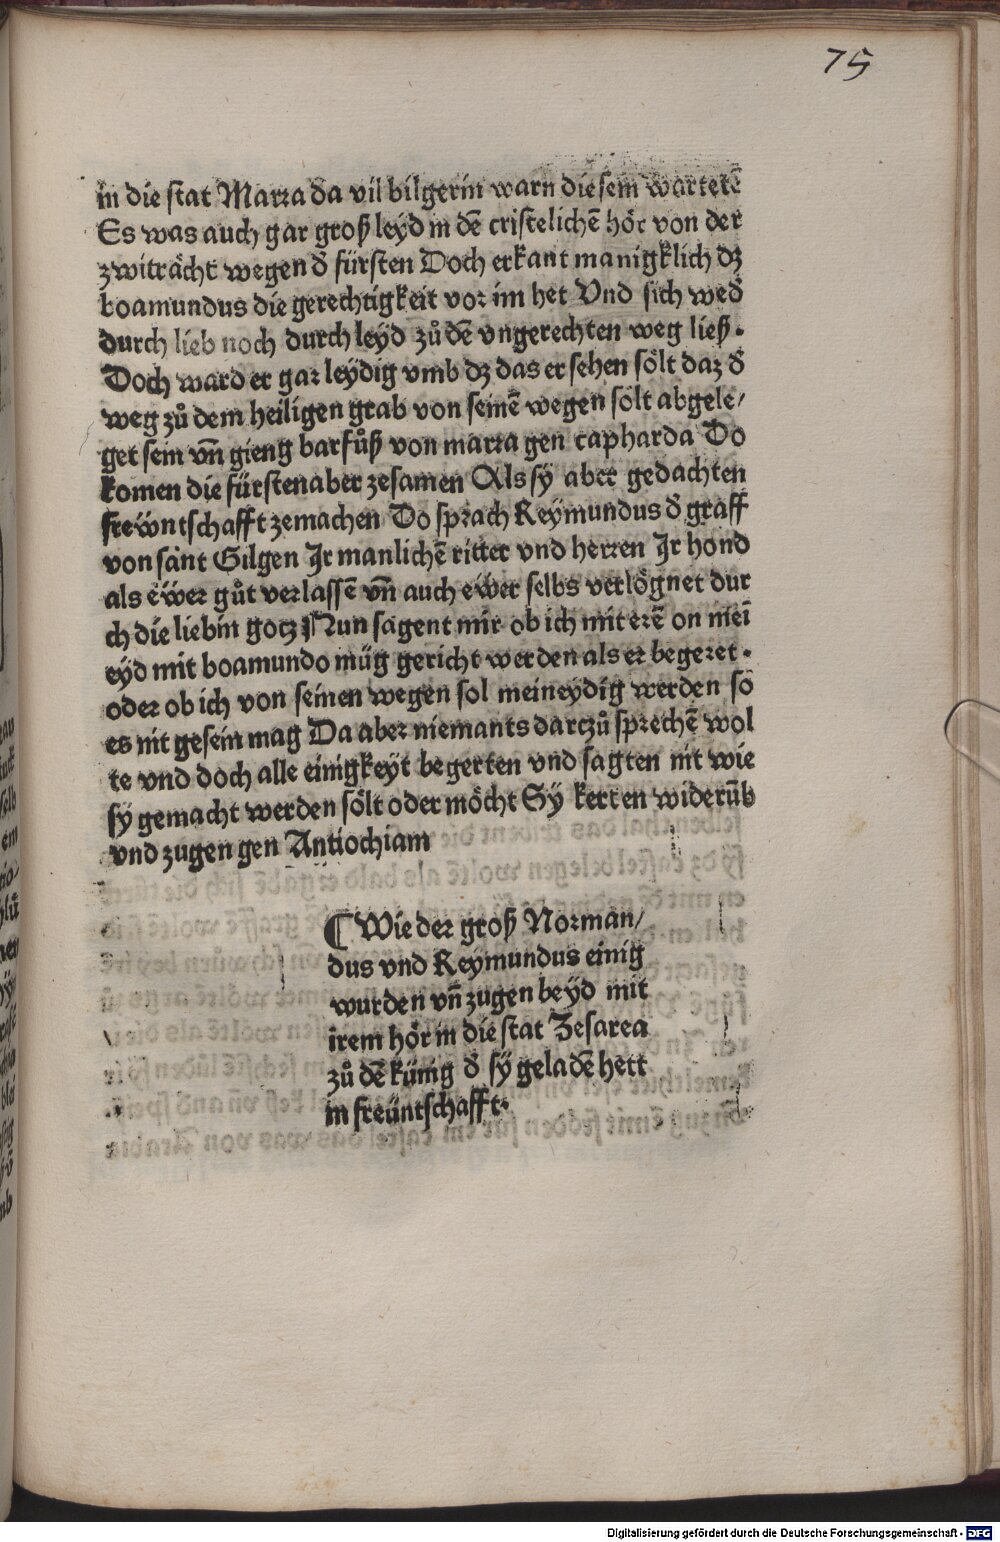 75
in die stat Marra da vil bilgerin warn die sein wartetē
Es was auch gar groß leyd in dē cristelichē hör von der
zwiträcht wegen d̕ fürsten Doch erkant manigklich dz
boamundus die gerechtigkeit vor im het Vnd sich wed̕
durch lieb noch durch leyd zů dē vngerechten weg ließ.
Doch ward er gar leydig vmb dz das er sehen sölt daz d̕
weg zů dem heiligen grab von seinē wegen solt abgele/
get sein vñ gieng barfůß von marra gen capharda Do
komen die fürsten aber zesamen Als sy aber gedachten
frewntschafft zemachen Do sprach Reymundus d̕ graff
von sant Gilgen Jr manlichē ritter vnd herren Jr hond
als ewer gůt verlassē vñ auch ewer selbs verlögnet dur
ch die liebin gotz Nun sagent mir ob ich mit erē on mei
eyd mit boamundo müg gericht werden als er begeret.
oder ob ich von seinen wegen sol meineydig werden so
es nit gesein mag Da aber niemants darczů sprechē wol
te vnd doch alle einigkeyt begerten vnd sagten nit wie
sy gemacht werden sölt oder möcht Sy kerten widerūb
vnd zugen gen Antiochiam
¶ Wie der groß Norman/
dus vnd Reymundus einig
wurden vñ zugen beyd mit
irem hör in die stat Zesarea
zů dē künig d̕ sy geladē hett
in freüntschafft.
Digitalisierung gefördert durch die Deutsche Forschungsgemeinschaft - DFG